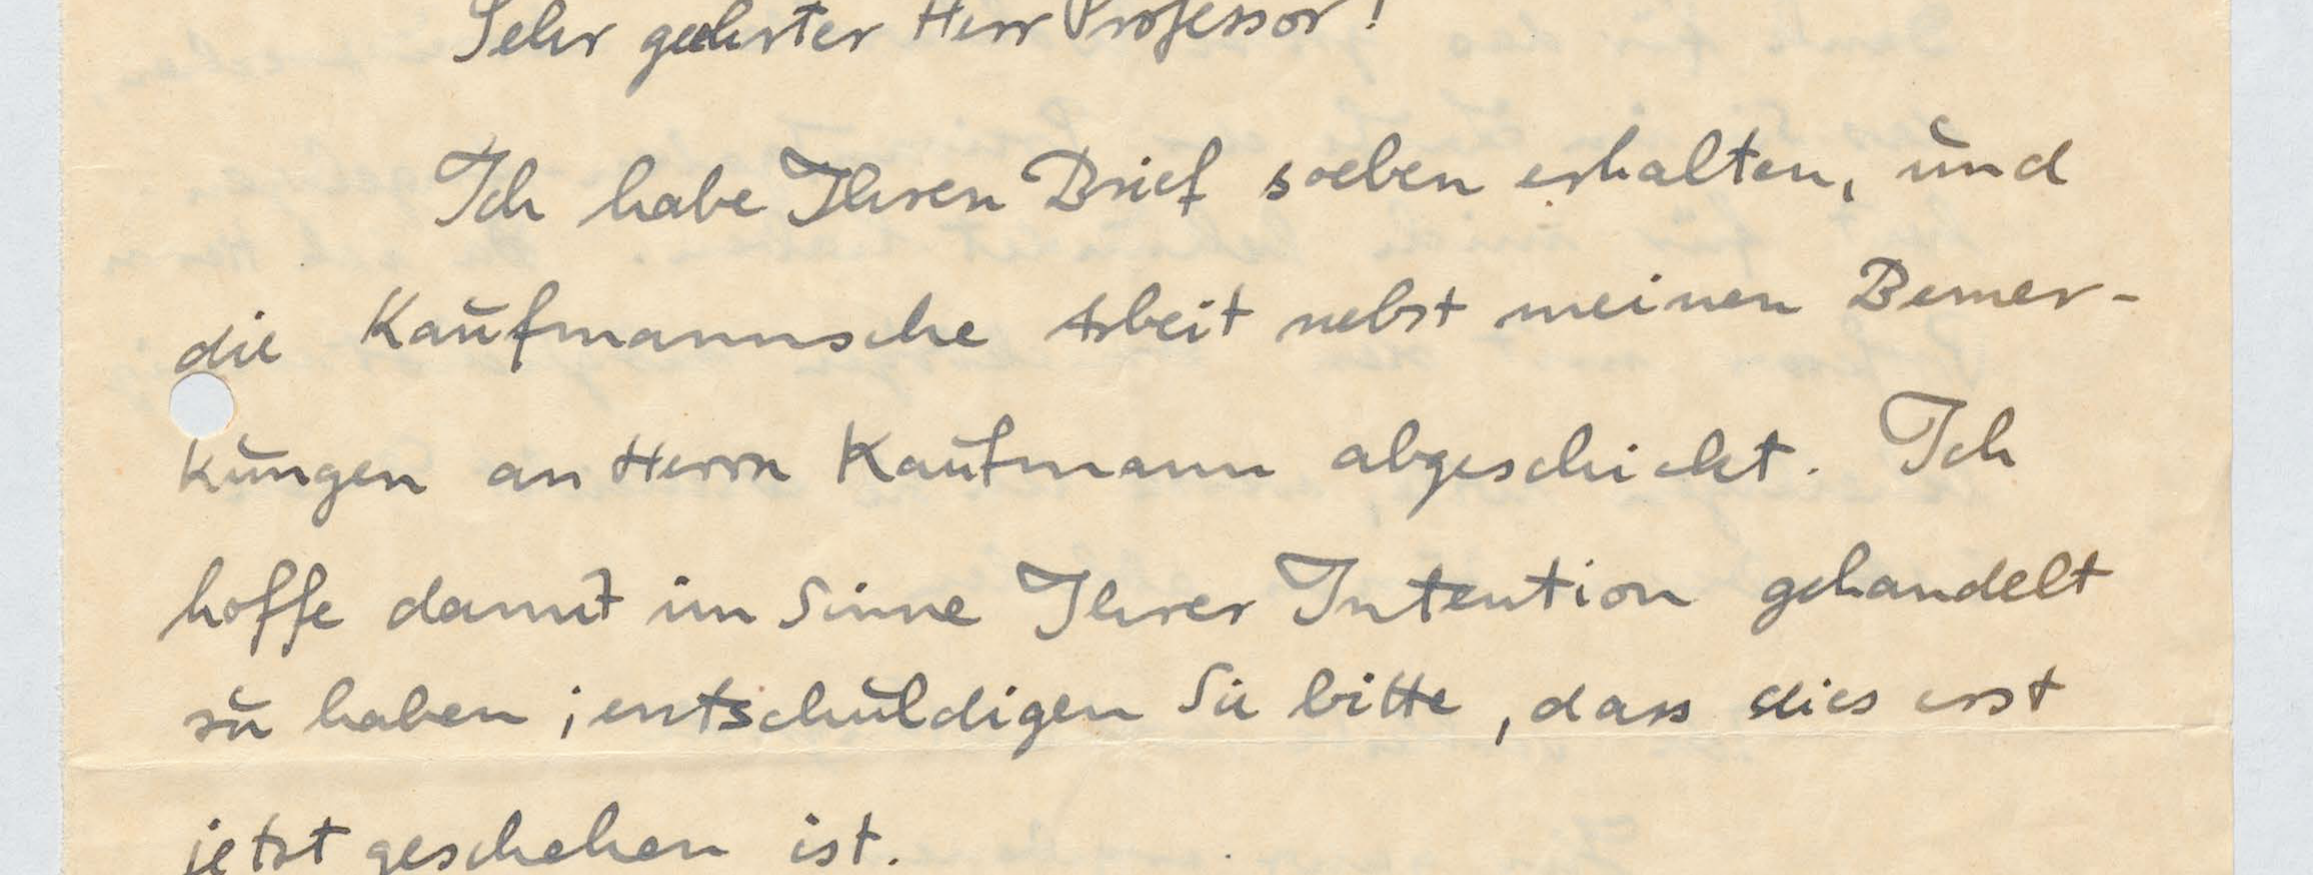 Sehr geehrter Herr Professor!
Ich habe Ihren Brief soeben erhalten, und
die Kaufmannsche Arbeit nebst meinen Bemer-
kungen an Herrn Kaufmann abgeschickt. Ich
hoffe damit im Sinne Ihrer Intention gehandelt
zu haben; entschuldigen Sie bitte, dass dies erst
jetzt geschehen ist.